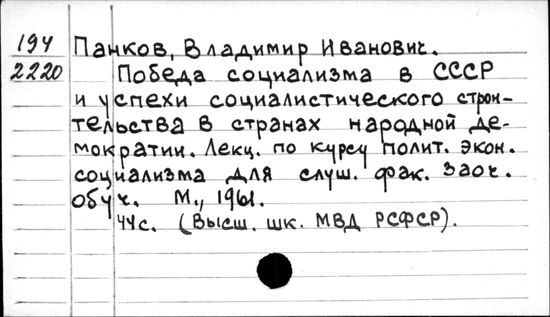 194 Панков, Владимир Иванович.
2220 Победа социализма в СССР
и успехи социалистического строи-
тельства в странах народной де-
мократии. Лекц. по курсу полит. экон.
социализма для слуш. фак. заоч.
обуч. М., 1961.
44с. (Высш. шк. МВД РСФСР).